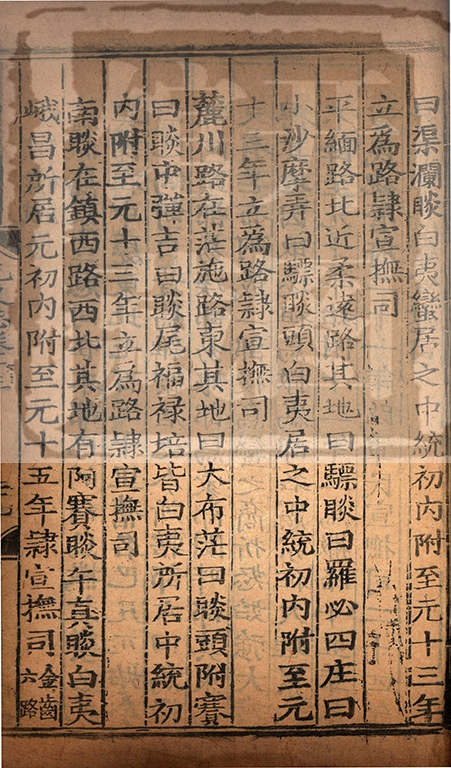 曰渠瀾睒白夷蠻居之中統初內附至元十三年
立為路隷宣撫司
平緬路北近柔遠路其地曰驃睒曰羅必四庄曰
小沙摩弄曰驃睒頭白夷居之中統初內附至元
十三年立為路隷宣撫司
麓川路在茫施路東其地曰大布茫曰睒頭附賽
曰睒中彈吉曰睒尾福祿培皆白夷所居中統初
內附至元十三年立為路隷宣撫司
南睒在鎮西路西北其地有阿賽睒午真睒白夷
峨昌所居元初內附至元十五年隷宣撫司金齒六路